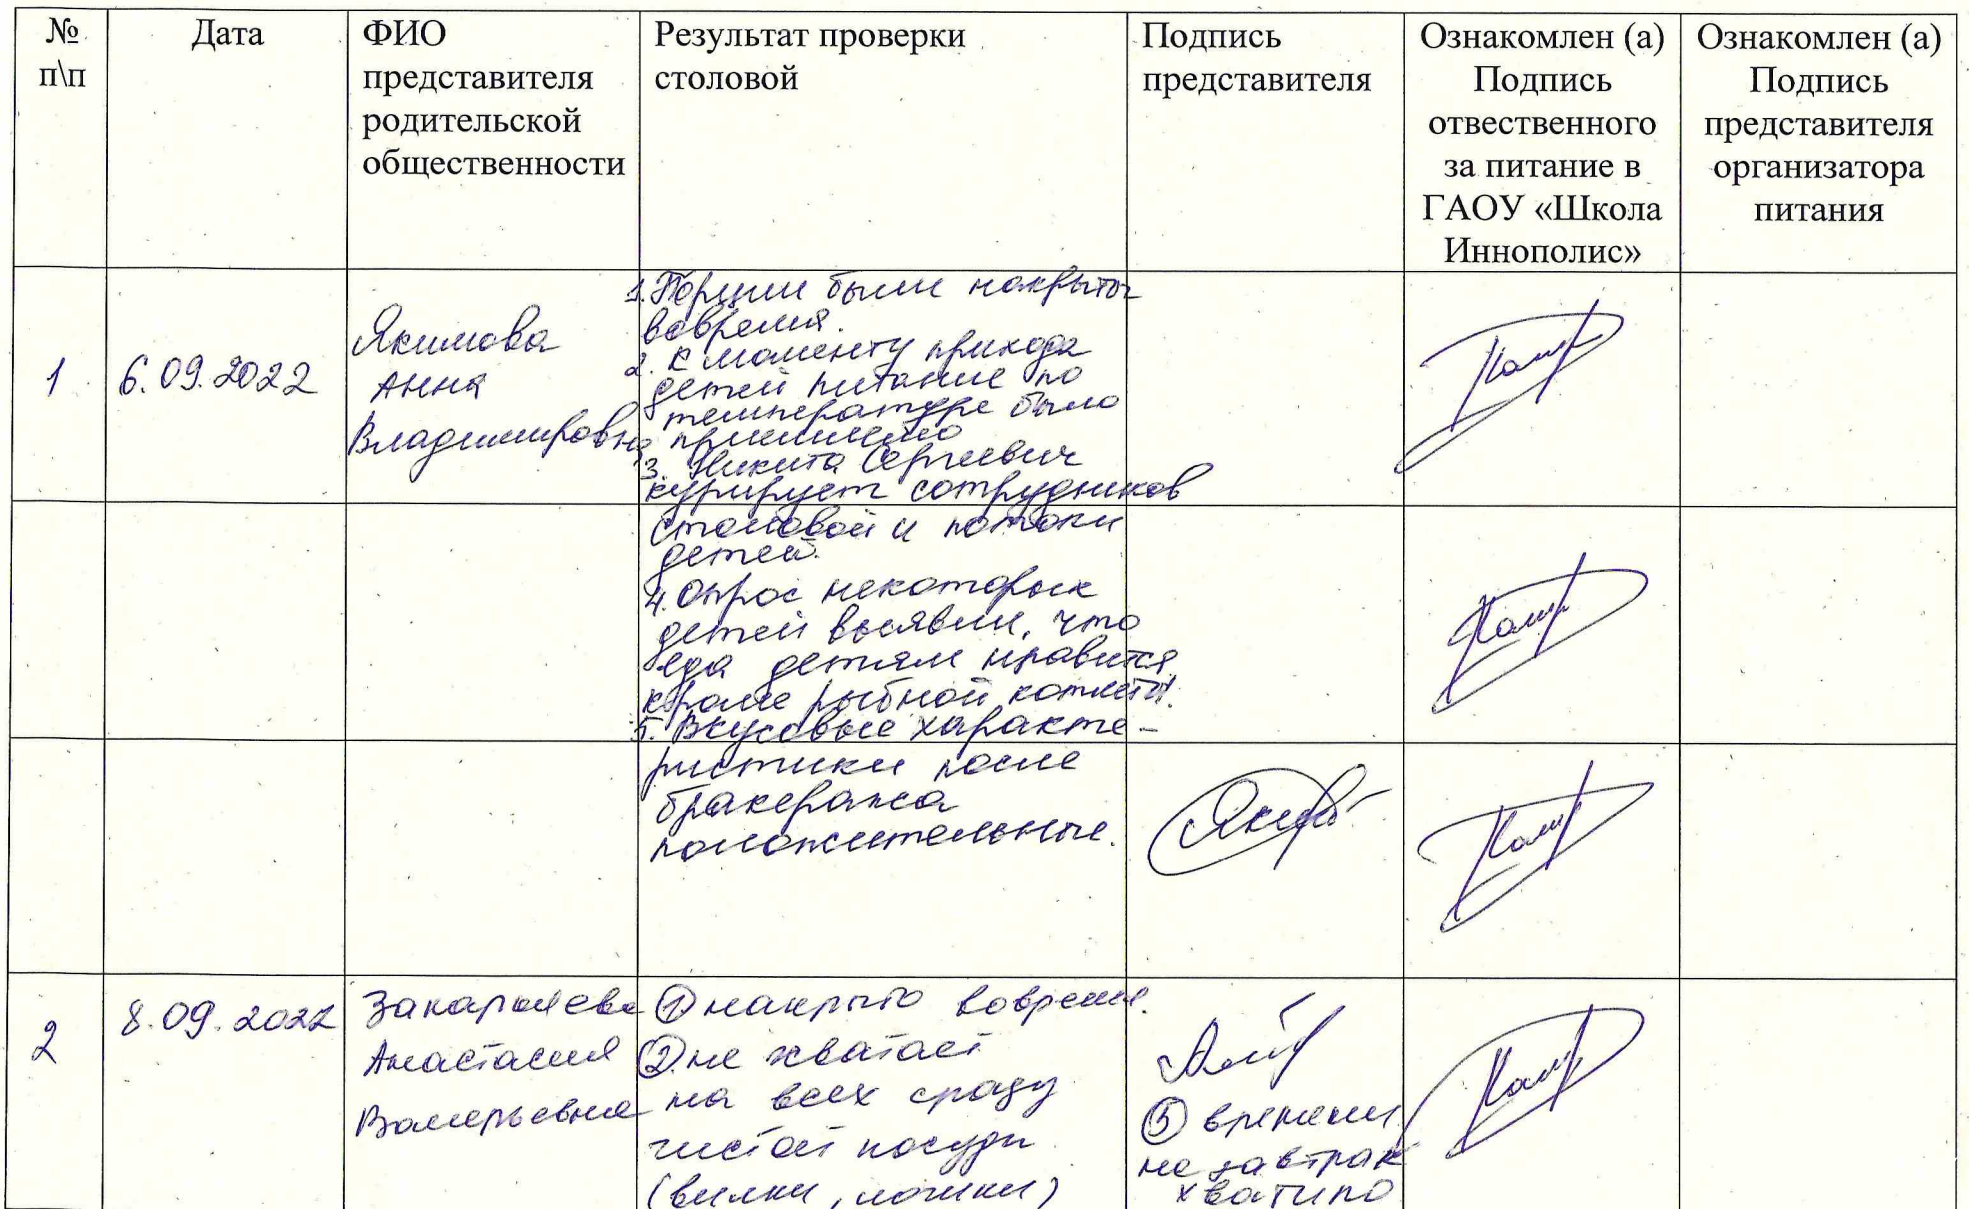 №
п\п
Дата
ФИО
представителя
родительской
общественности
Результат проверки
столовой
Подпись
представителя
Ознакомлен (а)
Подпись
отвественного
за питание в
ГАОУ «Школа
Иннополис»
Ознакомлен (а)
Подпись
представителя
организатора
питания
1
6.09.2022
Якимова
Анна
Владимировна
1. Порции были накрыты
вовремя.
2. К моменту прихода
детей питание по
температуре было
приемлемо
3. Никита Сергеевич
курирует сотрудников
столовой и потоки
детей.
4. Опрос некоторых
детей выявил, что
еда детям нравится
кроме рыбной котлеты.
5. Вкусовые характе-
ристики после
бракеража
положительные.
2
8.09.2022
Анастасия
Валерьевна
① накрыто вовремя.
② не хватает
на всех сразу
чистой посуды
(вилки, ложки)
⑤ времени
на завтрак
хватило